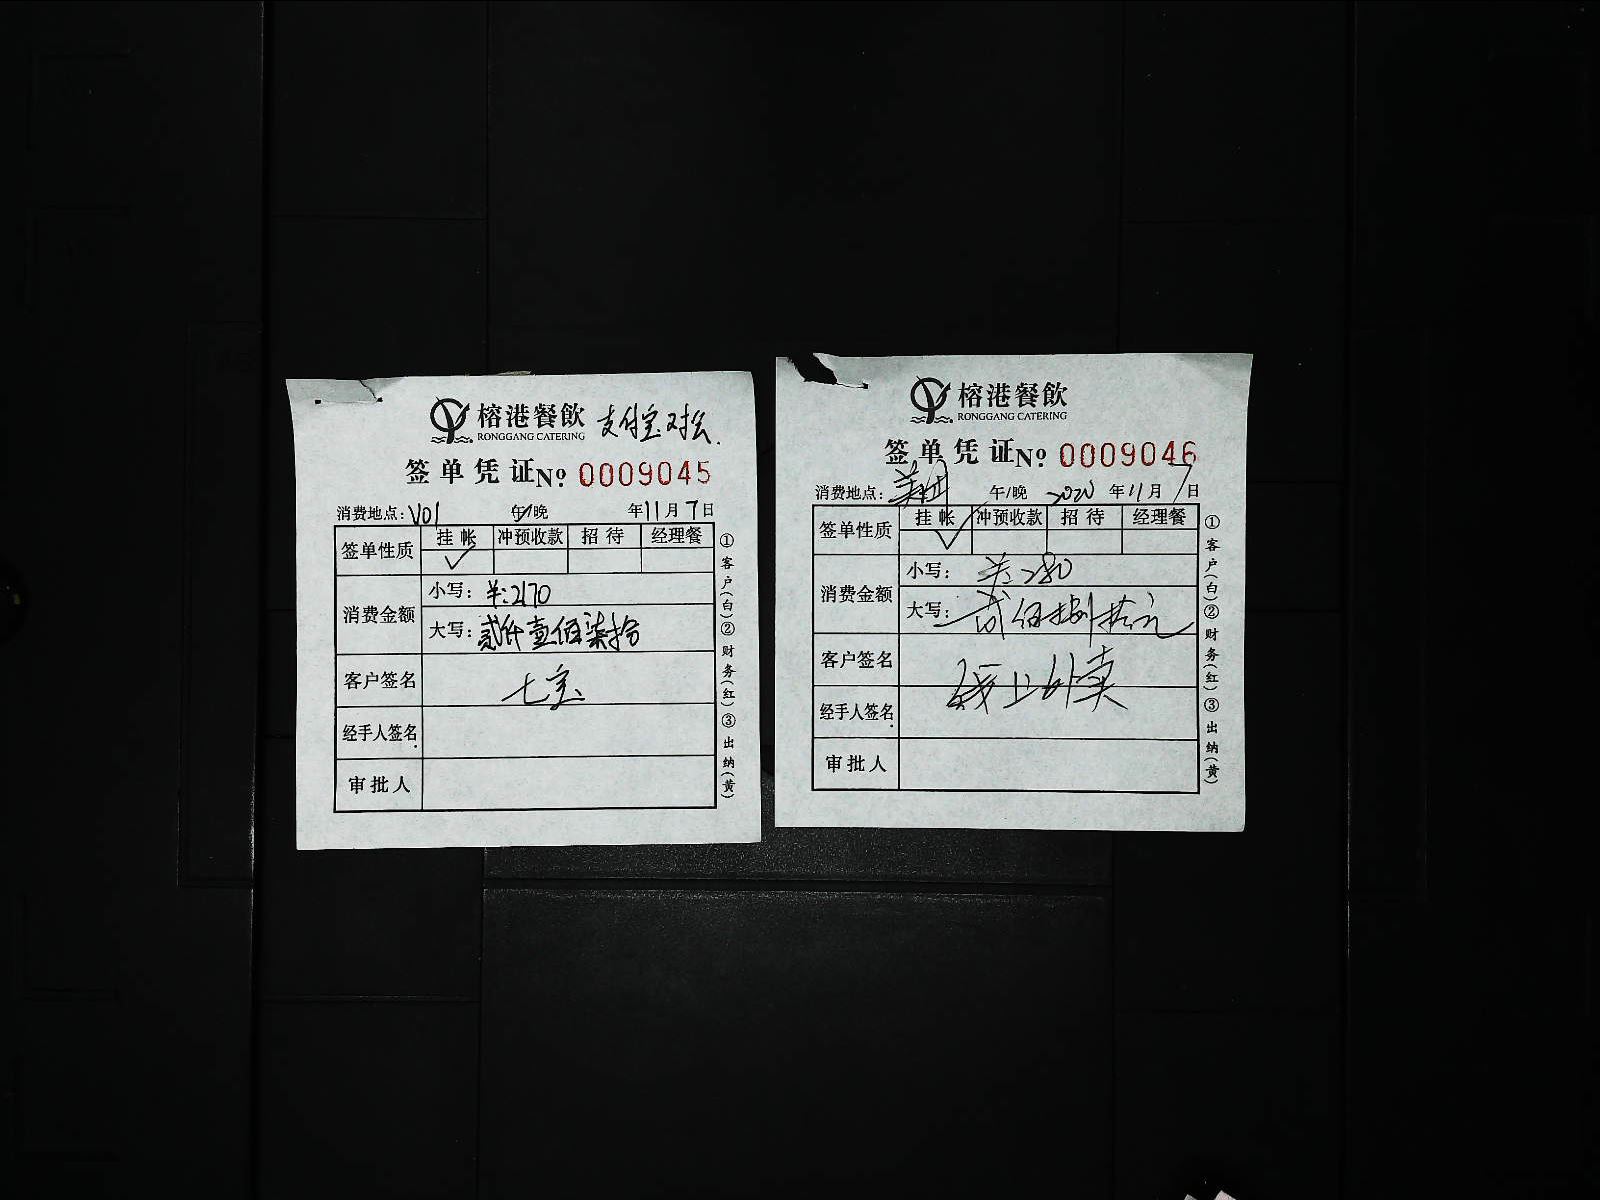 榕港餐飲 支付宝对公.
RONGGANG CATERING
签单凭证No 0009045
消费地点: V01 午/晚 年11月7日
签单性质 挂帐 冲预收款 招待 经理餐
✓
消费金额 小写: ¥:2170
大写: 贰仟壹佰柒拾
客户签名 七宝
经手人签名
审批人
①客户(白)②财务(红)③出纳(黄)
榕港餐飲
RONGGANG CATERING
签单凭证No 0009046
消费地点: 午/晚 2020年11月7日
签单性质 挂帐 冲预收款 招待 经理餐
✓
消费金额 小写: ¥:280
大写: 贰佰捌拾元
客户签名 线上外卖
经手人签名
审批人
①客户(白)②财务(红)③出纳(黄)